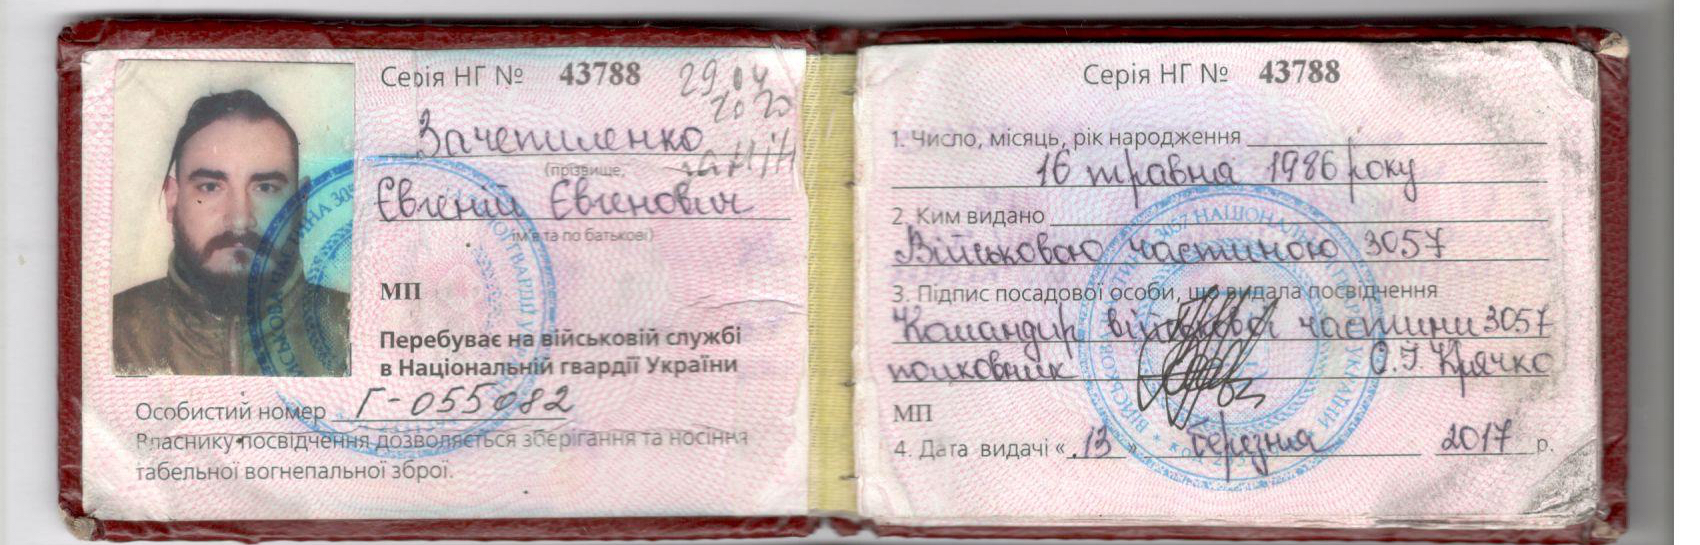 Серія НГ № 43788
29.04
2020
Зачепиленко
(прізвище,
Євгеній Євгенович
ім'я та по батькові)
МП
Перебуває на військовій службі
в Національній гвардії України
Особистий номер Г-055082
Власнику посвідчення дозволяється зберігання та носіння
табельної вогнепальної зброї.
Серія НГ № 43788
1. Число, місяць, рік народження
16 травня 1986 року
2. Ким видано
Військовою частиною 3057
3. Підпис посадової особи, що видала посвідчення
Командир військової частини 3057
полковник О.Г. Крячко
МП
4. Дата видачі « 13 » березня 2017 р.